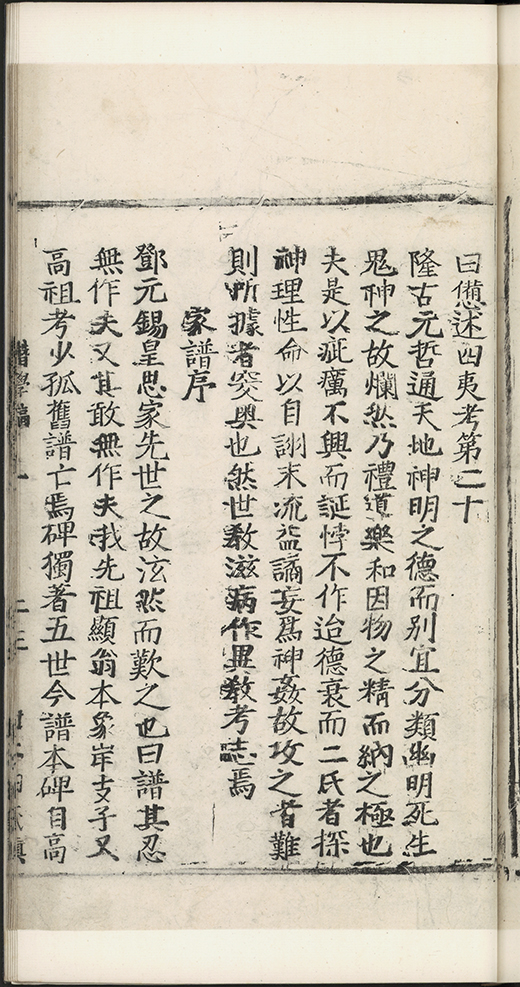 曰憊述四夷考第二十
隆古元哲通天地神明之德而別宜分類幽明死生
鬼神之故爛然乃禮道樂和因物之精而納之極也
夫是以疵癘不興而誕悖不作迨德衰而二氏者探
神理性命以自詡末流益譎妄爲神姦故攻之者難
則所據者突奧也然世教滋病作異教考志焉
家譜序
鄧元錫皇思家先世之故泫然而歎之也曰譜其忍
無作夫又其敢無作夫我先祖顯翁本象岸支子又
高祖考少孤舊譜亡焉碑獨著五世今譜本碑自高
潛學稿